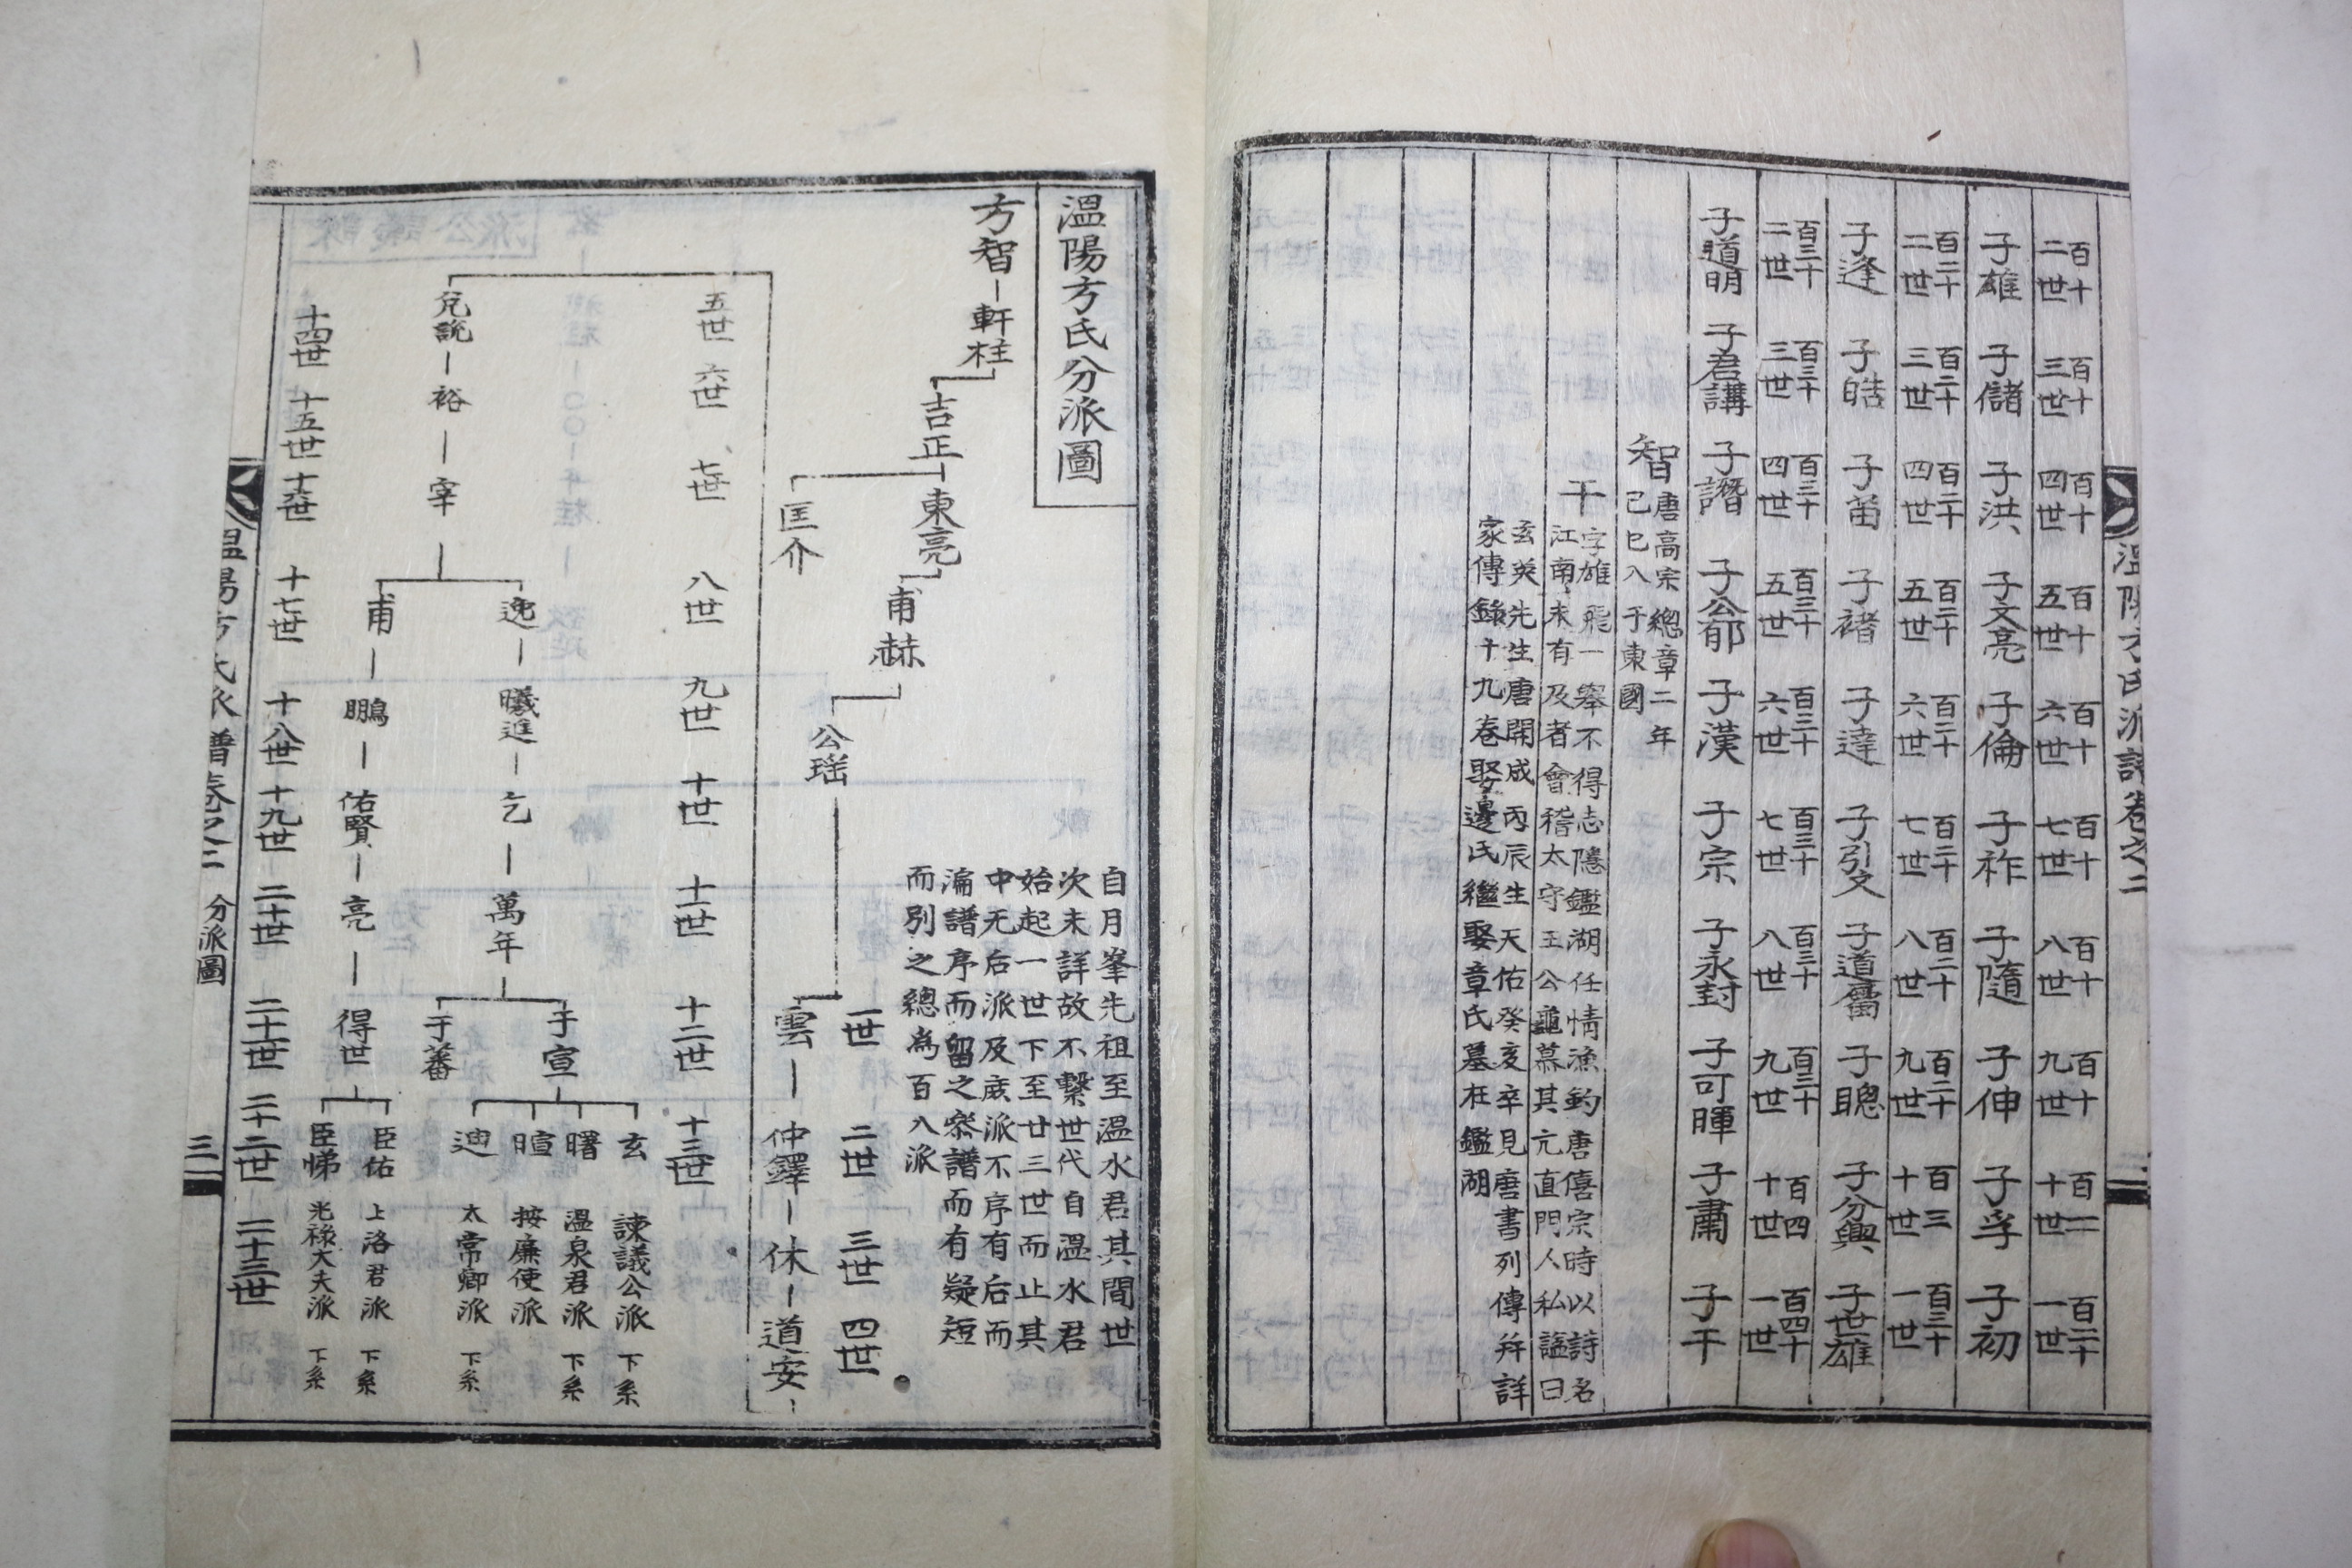 溫陽方氏派譜卷之二
百十二世 百十三世 百十四世 百十五世 百十六世 百十七世 百十八世 百十九世 百二十世 百二十一世
子雄 子儲 子洪 子文亮 子倫 子祚 子隨 子伸 子孚 子初
百二十二世 百二十三世 百二十四世 百二十五世 百二十六世 百二十七世 百二十八世 百二十九世 百三十世 百三十一世
子逢 子皓 子笛 子褚 子達 子引文 子道 子聰 子分興 子世雄
百三十二世 百三十三世 百三十四世 百三十五世 百三十六世 百三十七世 百三十八世 百三十九世 百四十世 百四十一世
子道明 子君講 子譖 子公郁 子漢 子宗 子永封 子可暉 子肅 子干
智
唐高宗總章二年
己巳入于東國
干
字雄飛一舉不得志隱鑑湖任情漁釣唐僖宗時以詩名
江南未有及者會稽太守王公龜慕其亢直門人私謚曰
玄英先生唐開成丙辰生天佑癸亥卒見唐書列傳并詳
家傳錄十九卷娶邊氏繼娶章氏墓在鑑湖
溫陽方氏分派圖
方智 軒柱
吉正
東亮
匡介
甫赫
公瑤
自月峯先祖至溫水君其間世
次未詳故不繫世代自溫水君
始起一世下至廿三世而止其
中无后派及庶派不序有后而
漏譜序而留之叅譜而有疑短
而別之總為百八派
一世 二世 三世 四世
雲 仲鐸 休 道安
五世 六世 七世 八世 九世 十世 十一世 十二世 十三世
兌說 裕 宰
逸 曦進 乞 萬年
子宣
子蕃
玄 諫議公派 下系
曙 溫泉君派 下系
暄 按廉使派
迪 太常卿派 下系
甫 鵬 佑賢 亮 得世
臣佑 上洛君派 下系
臣悌 光祿大夫派 下系
十四世 十五世 十六世 十七世 十八世 十九世 二十世 二十一世 二十二世 二十三世
溫陽方氏派譜卷之二 分派圖 三